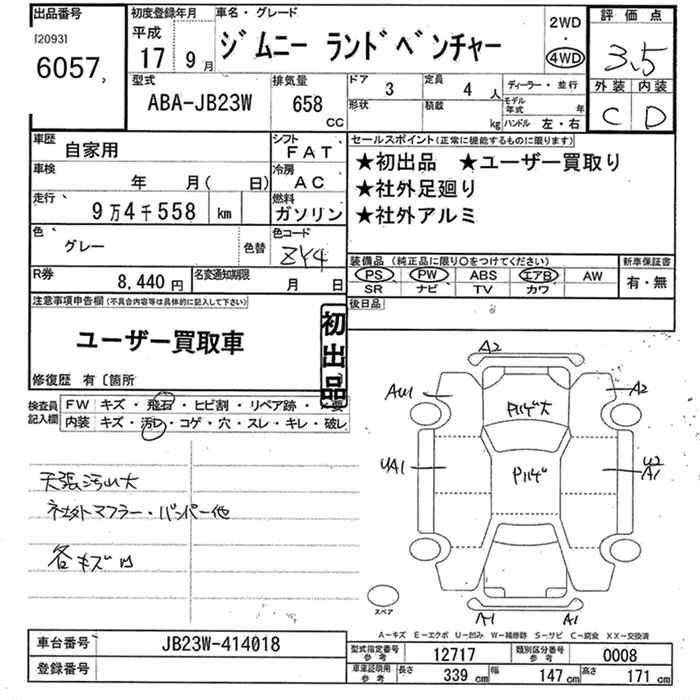 出品番号 初度登録年月 車名・グレード 2WD 評価点
[2093] 平成
6057 17年 9月 ジムニー ランドベンチャー 4WD 3.5
型式 排気量 ドア 3 定員 4人 ディーラー・並行 外装 内装
ABA-JB23W 658 CC 形状 積載 kg モデル年式 年 ハンドル 左・右 C D
車歴 自家用 シフト FAT セールスポイント(正常に機能するものに限ります)
★初出品 ★ユーザー買取り
車検 年 月( 日) 冷房 AC ★社外足廻り
走行 9万4千558 km 燃料 ガソリン ★社外アルミ
色 グレー 色替 色コード ZY4
装備品 (純正品に限り○をつけてください) 新車保証書
PS PW ABS エアB AW 有・無
R券 8,440円 名変通知期限 月 日 SR ナビ TV カワ
注意事項申告欄(不具合内容等は具体的に記入して下さい) 後日品
ユーザー買取車 初出品
修復歴 有〔箇所
検査員記入欄 FW キズ・飛石・ヒビ割・リペア跡・ 要
内装 キズ・汚レ・コゲ・穴・スレ・キレ・破レ
A2
AU1 A2
UA1 U2 A1
天張汚れ大
社外マフラー・バンパー他
各キズU
スペア
A1 A1
A-キズ E-エクボ U-凹み W-補修跡 S-サビ C-腐食 XX-交換済
車台番号 JB23W-414018 型式指定番号 参考 12717 類別区分番号 参考 0008
登録番号 車庫証明用 参考 長さ 339 cm 幅 147 cm 高さ 171 cm